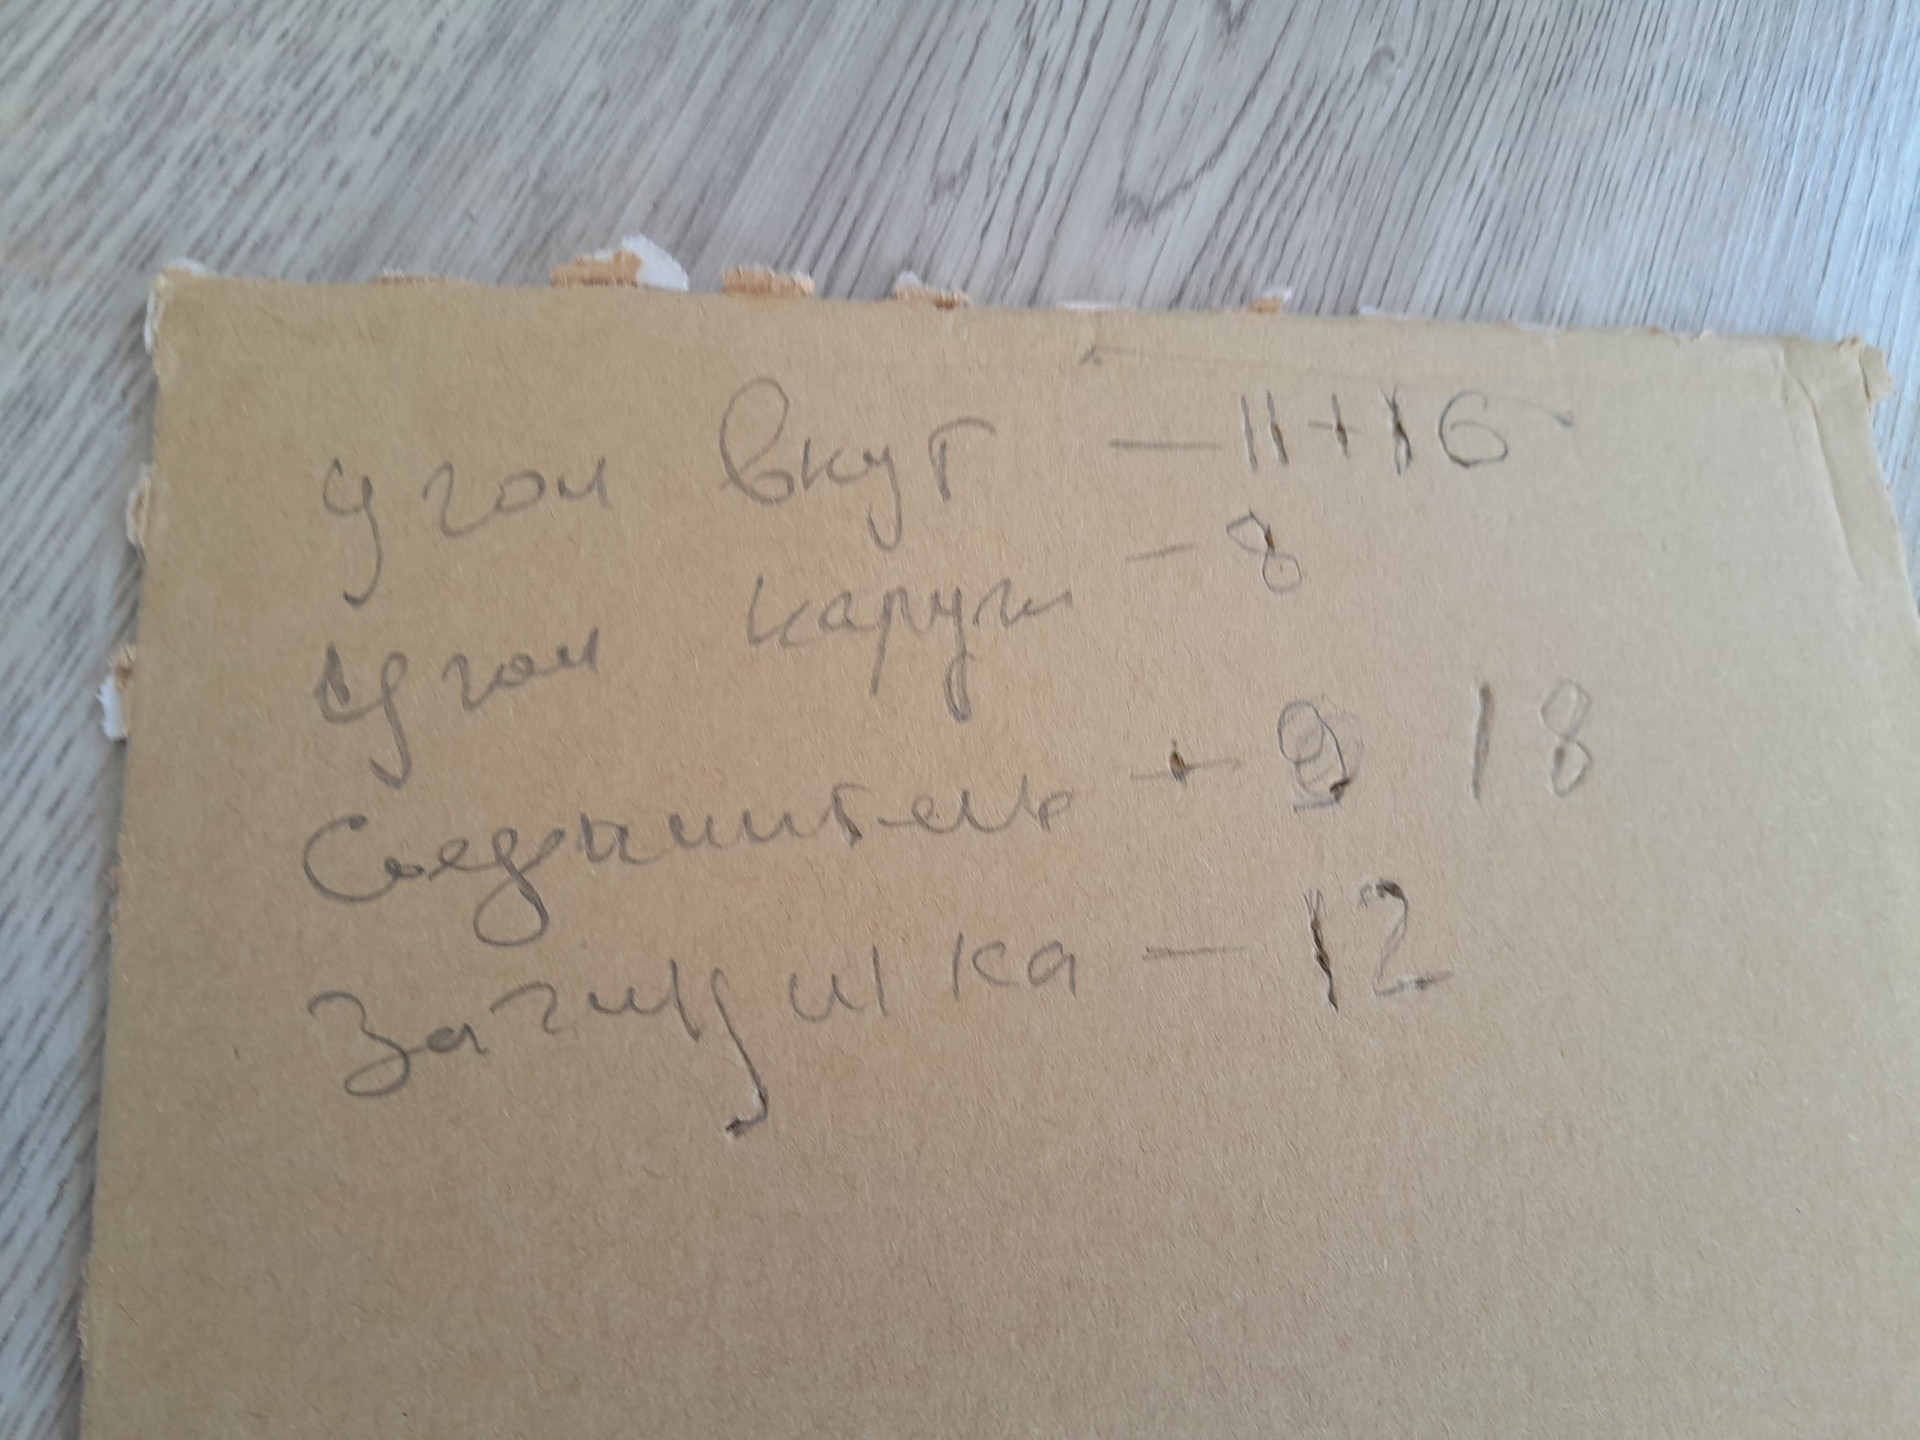 Угол внут — 11+16
Угол наружн — 8
Соединитель + 9 18
Заглушка — 12